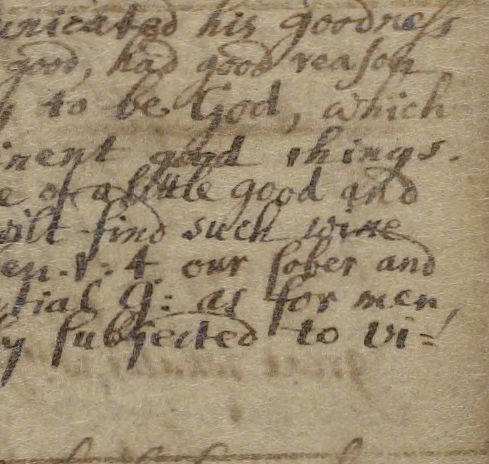 unicated his goodness
good, had good reason
y to be God, which
inent good things.
e of a little good and
wilt find such wine
en. V: 4 our sober and
ntial G: as for men,
ly subjected to vi-